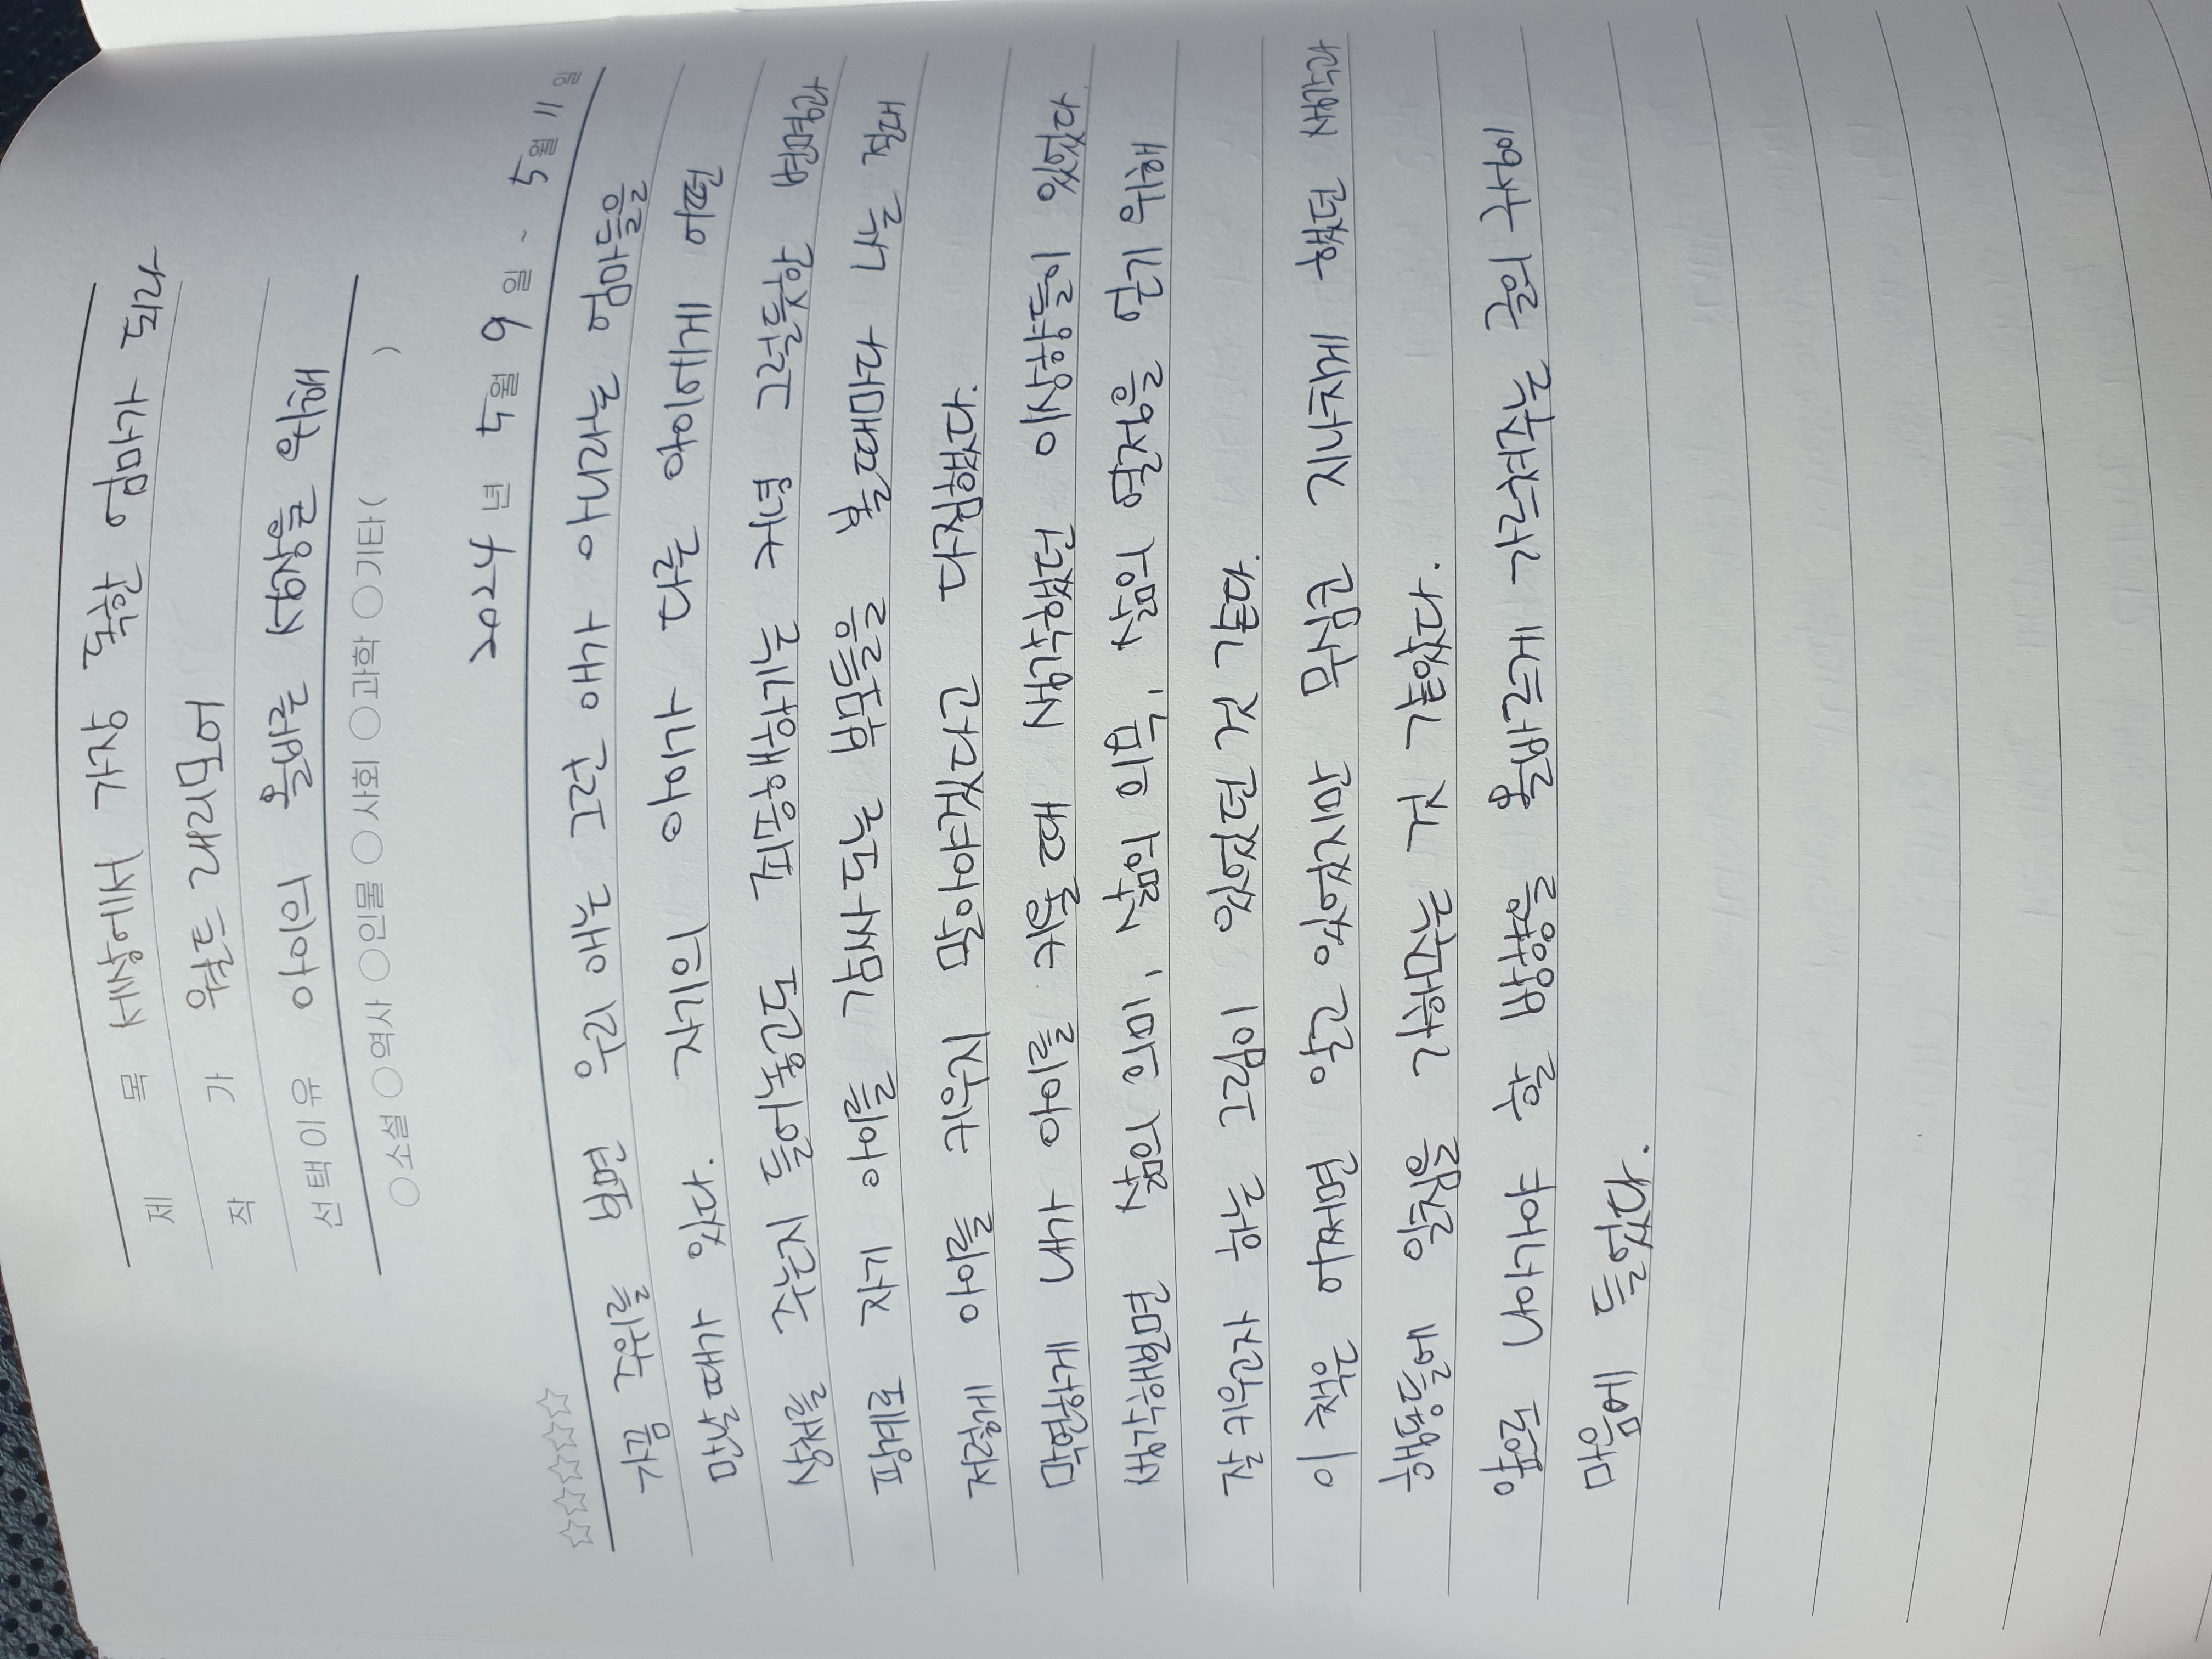 제 목 세상에서 가장 독한 엄마가 되라
작 가 월트 래리모어
선택이유 아이의 올바른 성장을 위해
○소설 ○역사 ○인물 ○사회 ○과학 ○기타( )
2024 년 5월 9 일 ~ 5월 11 일
☆☆☆☆☆
가끔 주위를 보면 우리 애는 그런 애가 아니라는 엄마들을
만날때가 있다. 자기의 아이가 다른 아이에게 어떤
상처를 주는지 들어놓고도 죄송해하기는 커녕 그럴듯한 변명과
핑계로 자기 아이를 감싸도는 부모들을 볼때마다 나는 절대
저렇게 아이를 키우지 말아야겠다고 다짐했다.
막연하게 내가 아이를 키울때 생각했던 이상향들이 있었다.
생각해보면 삶의 의미, 삶의 의무, 삶의 열정을 얻기 위해
잘 키우고자 하는 그림이 있었던 것 같다.
이 책은 어쩌면 알고 있었지만 무심코 지나치게 했던 생각과
행동들에 일침을 가해주는 것 같았다.
앞으로 나아가야 할 방향을 올바르게 가르쳐주는 글의 구성이
마음에 들었다.